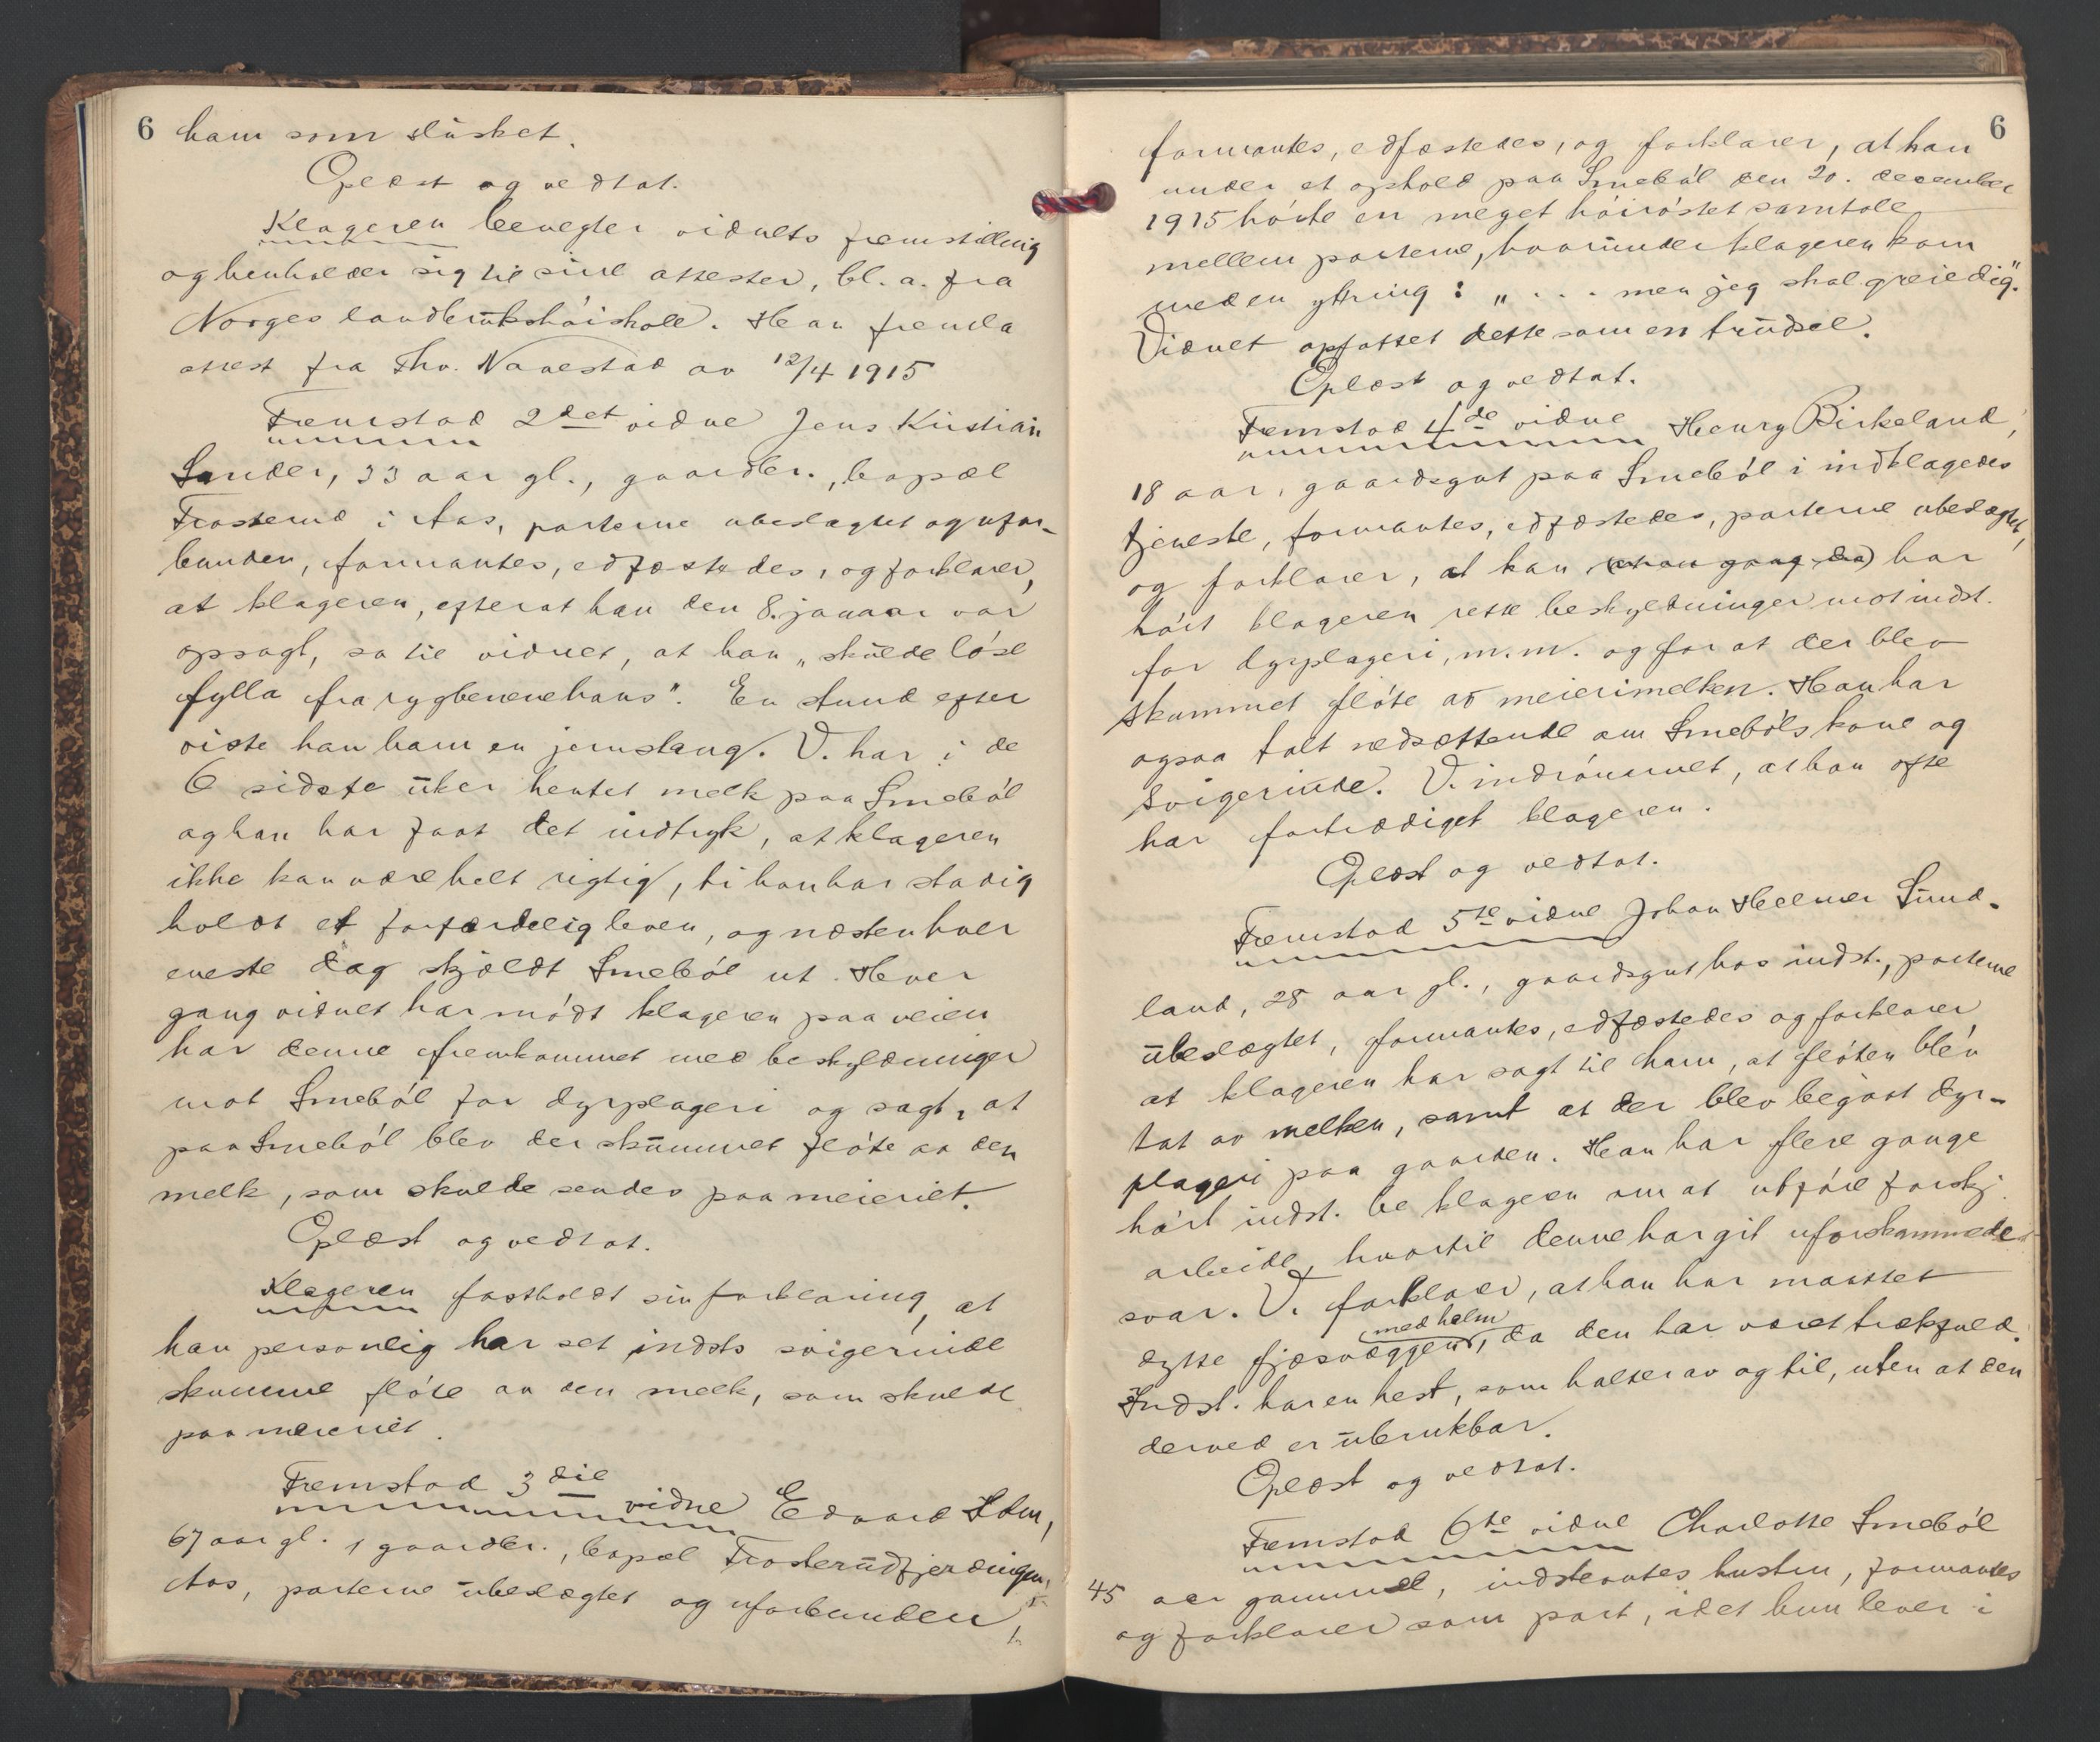 6 ham som slusket.
Oplæst og vedtat.
Klageren benegter vidnets fremstilling
og henholder sig til sine attester, bl. a. fra
Norges landbrukshöiskole. Han fremla
attest fra Thv. Navestad av 12/4 1915
Fremstod 2det vidne Jens Kristian
Sander, 33 aar gl., gaardbr., bopæl
Frosterud i Aas, parterne ubeslægtet og ufor-
bunden, formantes, edfæstedes, og forklarer,
at klageren, efterat han den 8. januar var
opsagt, sa til vidnet, at han „skulde löse
fylla fra rygbenene hans". En stund efter
viste han ham en jernstang. V. har i de
6 sidste uker hentet melk paa Smeböl
og han har faat det indtryk, at klageren
ikke kan være helt rigtig, ti han har stadig
holdt et forfærdelig leven, og næsten hver
eneste dag skjældt Smeböl ut. Hver
gang vidnet har mödt klageren paa veien
har denne fremkommet med beskyldninger
mot Smeböl for dyrplageri og sagt, at
paa Smeböl blev der skummet flöte av den
melk, som skulde sendes paa meieriet.
Oplæst og vedtat.
Klageren fastholdt sin forklaring, at
han personlig har set indsts svigerinde
skumme flöte av den melk, som skulde
paa meieriet.
Fremstod 3die vidne Edvard Holm,
67 aar gl., gaardbr., bopæl Frosterudfjerdingen,
Aas, parterne ubeslægtet og uforbunden,
6
formantes, edfæstedes, og forklarer, at han
under et ophold paa Smeböl den 20. december
1915 hörte en meget höiröstet samtale
mellem parterne, hvorunder klageren kom
med en ytring: „ . . . men jeg skal greie dig".
Vidnet opfattet dette som en trudsel.
Oplæst og vedtat.
Fremstod 4de vidne Henry Birkeland,
18 aar, gaardsgut paa Smeböl i indklagedes
tjeneste, formantes, edfæstedes, parterne ubeslægtet,
og forklarer, at han har
hört klageren rette beskyldninger mot indst.
for dyrplageri, m.m. og for at der blev
skummet flöte av meierimelken. Han har
ogsaa talt nedsættende om Smeböls kone og
svigerinde. V. indrömmet, at han ofte
har fortrædiget klageren.
Oplæst og vedtat.
Fremstod 5te vidne Johan Helmer Sund-
land, 28 aar gl., gaardsgut hos indst., parterne
ubeslægtet, formantes, edfæstedes og forklarer
at klageren har sagt til ham, at flöten blev
tat av melken, samt at der blev begaat dyr-
plageri paa gaarden. Han har flere gange
hört indst. be klageren om at utföre forskj.
arbeide, hvortil denne har git uforskammede
svar. V. forklarer, at han har maattet
dytte fjøsvæggen (med halm), da den har været trækfuld.
Indst. har en hest, som halter av og til, uten at den
derved er ubrukbar.
Oplæst og vedtat.
Fremstod 6te vidne Charlotte Smeböl
45 aar gammel, indstevntes hustru, formantes
og forklarer som part, idet hun lever i